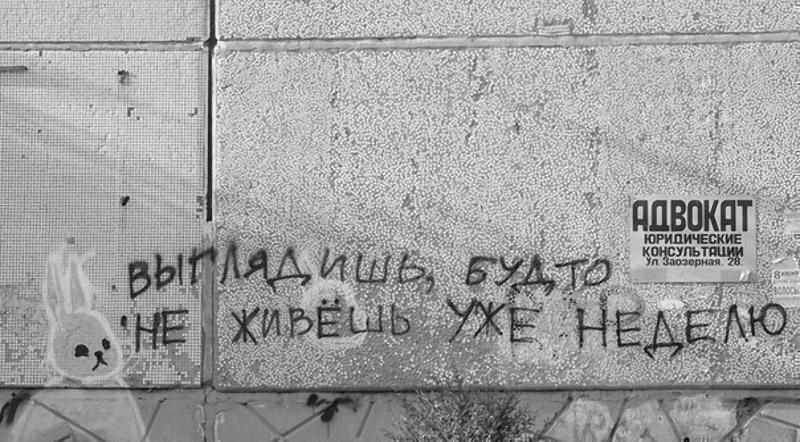 ВЫГЛЯДИШЬ, БУДТО
НЕ ЖИВЁШЬ УЖЕ НЕДЕЛЮ
АДВОКАТ
ЮРИДИЧЕСКИЕ
КОНСУЛЬТАЦИИ
Ул. Заозерная, 28